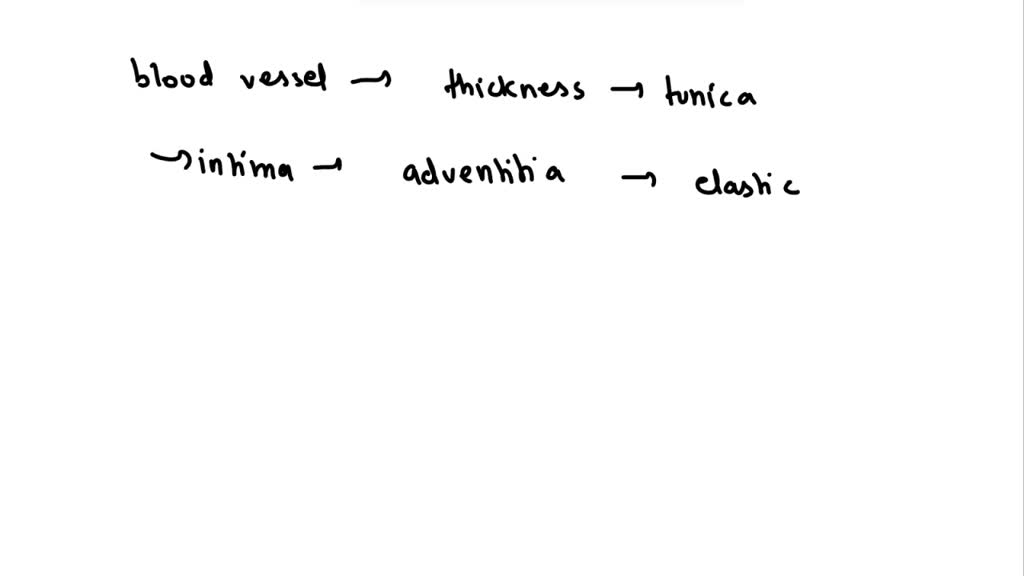 blood vessel → thickness → tunica
→ intima → adventitia → elastic